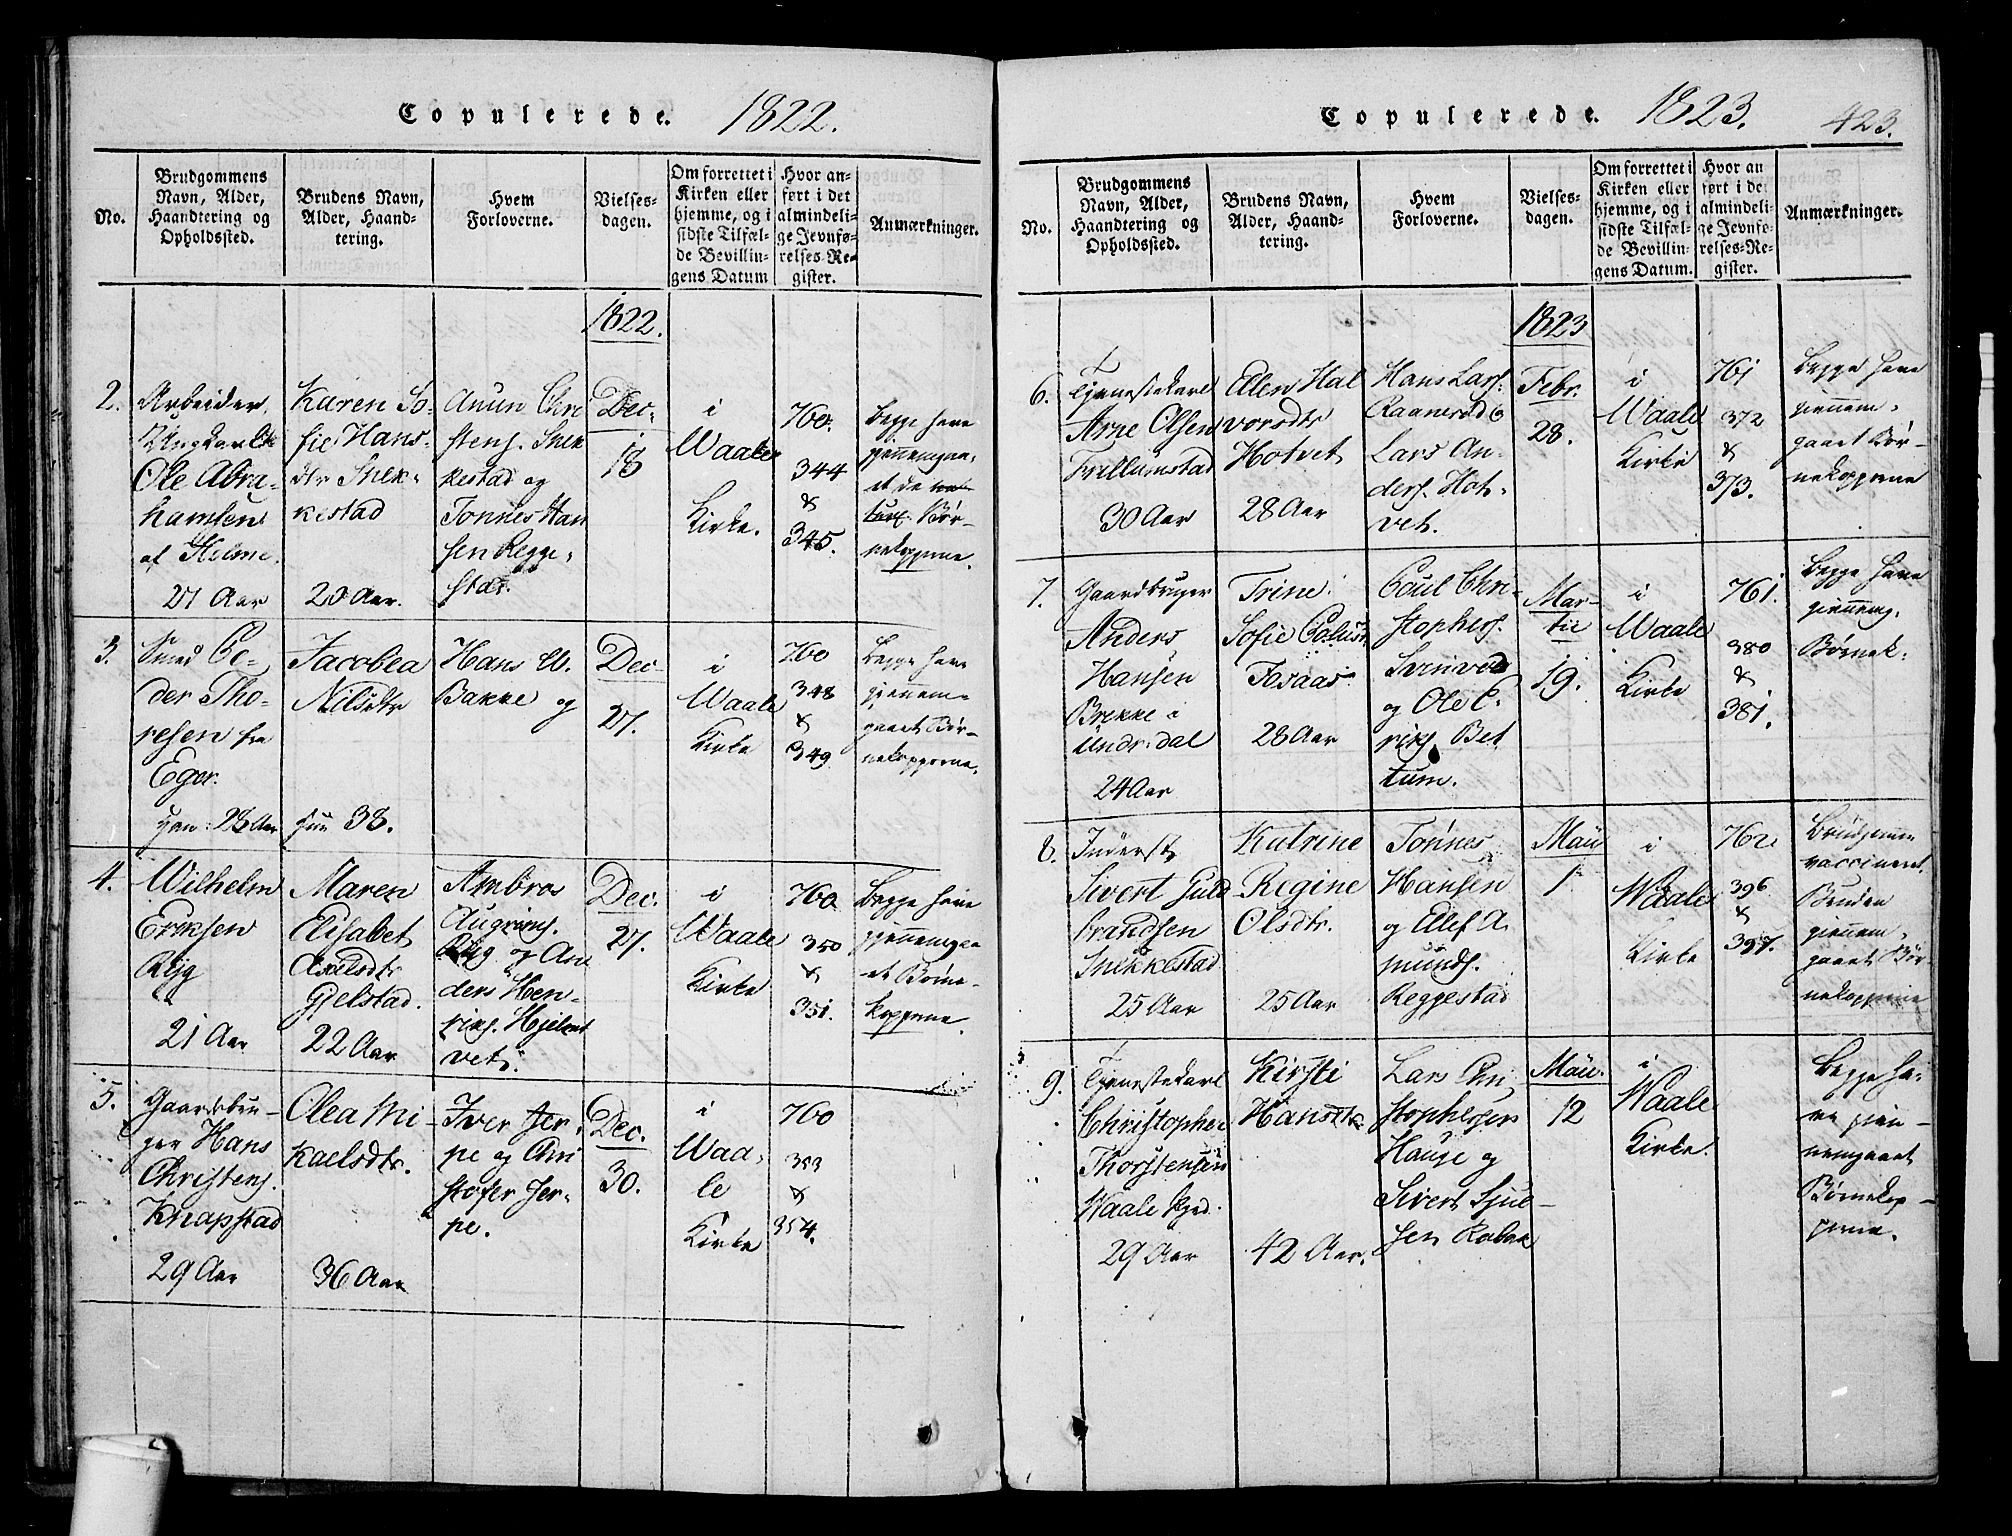 Copulerede. 1822.
No.
Brudgommens
Navn, Alder,
Haandtering og
Opholdssted.
Brudens Navn,
Alder, Haand-
tering.
Hvem
Forloverne.
Vielses-
dagen.
Om forrettet i
Kirken eller
hjemme, og i
sidste Tilfæl-
de Bevillin-
gens Datum
Hvor an-
ført i det
almindeli-
ge Jevnfø-
relses-Re-
gister.
Anmærkninger.
1822.
2.
Arbeider,
Ungkarl
Ole Abra-
hamsen
af Holme.
27 Aar
Karen So-
fie Hans-
dtr Snek-
kestad
20 Aar.
Anun Chri
stens. Snek
kestad og
Tonnes Han
sen Regge-
stad.
Dec.
18
i
Waale
Kirke.
760.
344
&
345.
Begge have
gjennemgaa-
et de
Bør-
nekopperne.
3.
Smed Pe-
der Tho-
resen fra
Eger.
han: 28 Aar
Jacobea
Nilsdtr
hun 38.
Hans W.
Bakke og
Dec
27.
i
Waale
Kirke
760
348
&
349
Begge have
gjennem-
gaaet Bør-
nekopperne.
4.
Wilhelm
Eriksen
Ryg
21 Aar
Maren
Elisabet
Axelsdtr
Gjelstad.
22 Aar
Ambros
Augrims.
Ryg og An
ders Hen-
riks. Hjelmt
vet.
Dec.
27.
i
Waale
Kirke
760
350
&
351.
Begge have
gjennemgaa
et Børne-
kopperne.
5.
Gaardbru-
ger Hans
Christens.
Knapstad
29 Aar
Olea Mi-
kaelsdtr.
36 Aar
Iver Jer-
pe og Chri
stofer Jer-
pe.
Dec.
30.
i
Waa-
le
Kirke
760
353
&
354.
Copulerede. 1823. 423.
No.
Brudgommens
Navn, Alder,
Haandtering og
Opholdssted.
Brudens Navn,
Alder, Haand-
tering.
Hvem
Forloverne.
Vielses-
dagen.
Om forrettet i
Kirken eller
hjemme, og i
sidste Tilfæl-
de Bevillin-
gens Datum.
Hvor an
ført i det
almindeli-
ge Jevnfø-
relses-Re-
gister.
Anmærkninger.
1823
6.
Tjenestekarl
Arne Olsen
Trillumstad
30 Aar
Ellen Hal
vorsdtr
Hotvet
28 Aar
Hans Lars.
Raanerud &
Lars An-
ders. Hot-
vet.
Febr.
28.
i
Waale
Kirke
761
372
&
373.
Begge have
gjennem-
gaaet Bør-
nekopperne
7.
Gaardbruger
Anders
Hansen
Brekke i
Undrsdal
24 Aar
Trine
Sofie
Fosaas
28 Aar
Poul Chri-
stophers.
og Ole E-
riks. Bet
tum.
Mar-
tii
19.
i
Waale
Kirke
761.
380
&
381.
Begge have
gjennemg.
Børnek.
8.
Inderst
Sivert Guld
brandsen
Snekkestad
25 Aar
Katrine
Regine
Olsdtr.
25 Aar
Tonnes
Hansen
og Ellef A-
munds.
Reggestad
Maii
1
i
Waale
Kirke
762
396
&
397.
Brudgommen
vaccineret.
Bruden
gjennem-
gaaet Bør-
nekopperne
9.
Tjenestekarl
Christopher
Thorstensen
Waale Pgd.
29 Aar
Kirsti
Hansdtr.
42 Aar.
Lars Chri-
stophersen
Hauge og
Sivert Sjul-
sen
Maii.
12
i
Waale
Kirke.
Begge ha-
ve gjen-
nemgaaet
Børnekop-
perne.